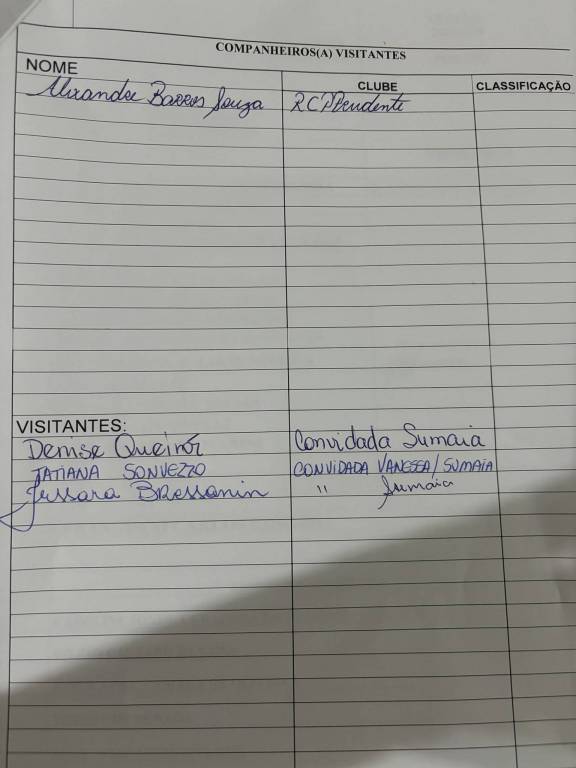 COMPANHEIROS(A) VISITANTES
NOME CLUBE CLASSIFICAÇÃO
Alexandre Barros Souza RCPPrudente
VISITANTES:
Denise Queiroz Convidada Sumaia
TATIANA SONVEZZO CONVIDADA VANESSA/SUMAIA
Jussara Bressanin " Sumaia